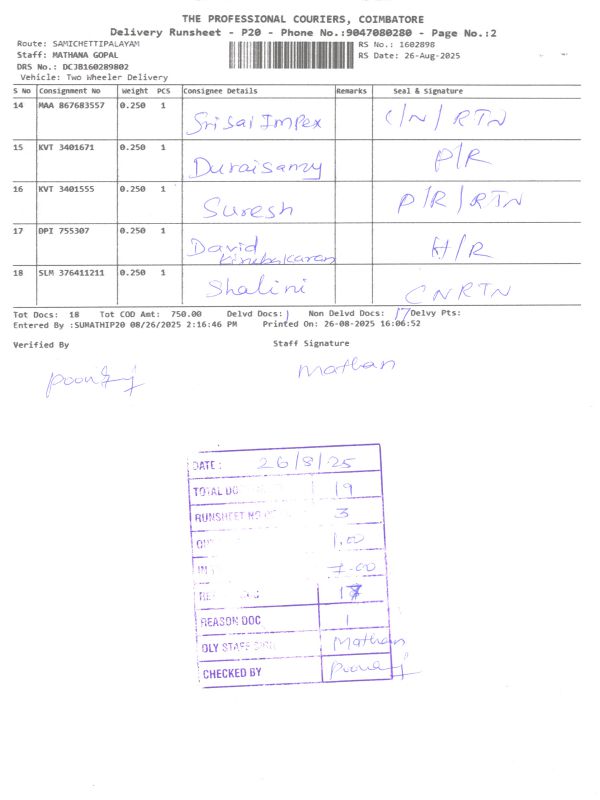 THE PROFESSIONAL COURIERS, COIMBATORE
Delivery Runsheet - P20 - Phone No.:9047080280 - Page No.:2
Route: SAMICHETTIPALAYAM
RS No.: 1602898
Staff: MATHANA GOPAL
RS Date: 26-Aug-2025
DRS No.: DCJB160289802
Vehicle: Two Wheeler Delivery
S No Consignment No Weight PCS Consignee Details Remarks Seal & Signature
14 MAA 867683557 0.250 1 Sri Sai Impex C/N/RTN
15 KVT 3401671 0.250 1 Duraisamy P/R
16 KVT 3401555 0.250 1 Suresh P/R/RTN
17 DPI 755307 0.250 1 David Kirubakaran H/R
18 SLM 376411211 0.250 1 Shalini CNRTN
Tot Docs: 18 Tot COD Amt: 750.00 Delvd Docs: 1 Non Delvd Docs: 17 Delvy Pts:
Entered By :SUMATHIP20 08/26/2025 2:16:46 PM Printed On: 26-08-2025 16:06:52
Verified By Staff Signature
Mathan
DATE : 26/8/25
TOTAL 19
RUNSHEET 3
1.00
IN 7.00
17
REASON DOC 1
DLY STAFF Mathan
CHECKED BY